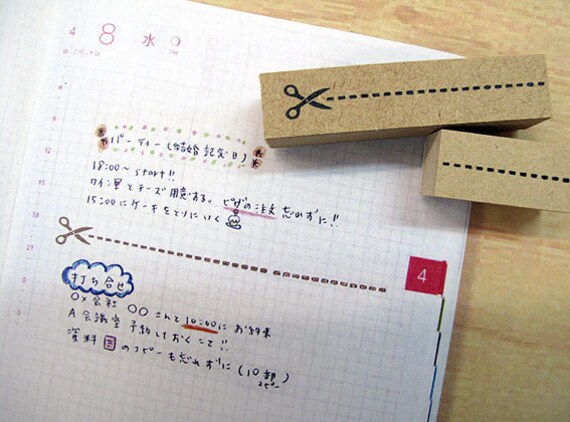 4 8 水
パーティー(結婚記念日)
18:00～ start!!
ワイン買とチーズ用意する。ピザの注文 忘れずに!!
15:00にケーキをとりにいく
4
打ち合せ
○×会社 ○○さんと10:00にお約束
A会議室 予約しておくこと!!
資料のコピーも忘れずに(10部)
コピー
12
15
18
21
0
3